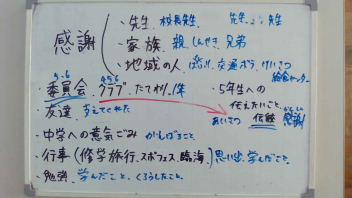 感謝
・先生 校長先生
・家族 親 しんせき 兄弟
・地域の人 交通ボラ けいさつ
給食センター
5.6
・委員会、
4 5 6
クラブ、たてわり、1年
・5年生への
伝えたいこと、
あいさつ 信頼 感謝
友達 支えてくれた
・中学への意気ごみ がんばること
・行事(修学旅行、スポフェス、臨海、)思い出、学んだこと、
・勉強 学んだこと、くろうしたこと、